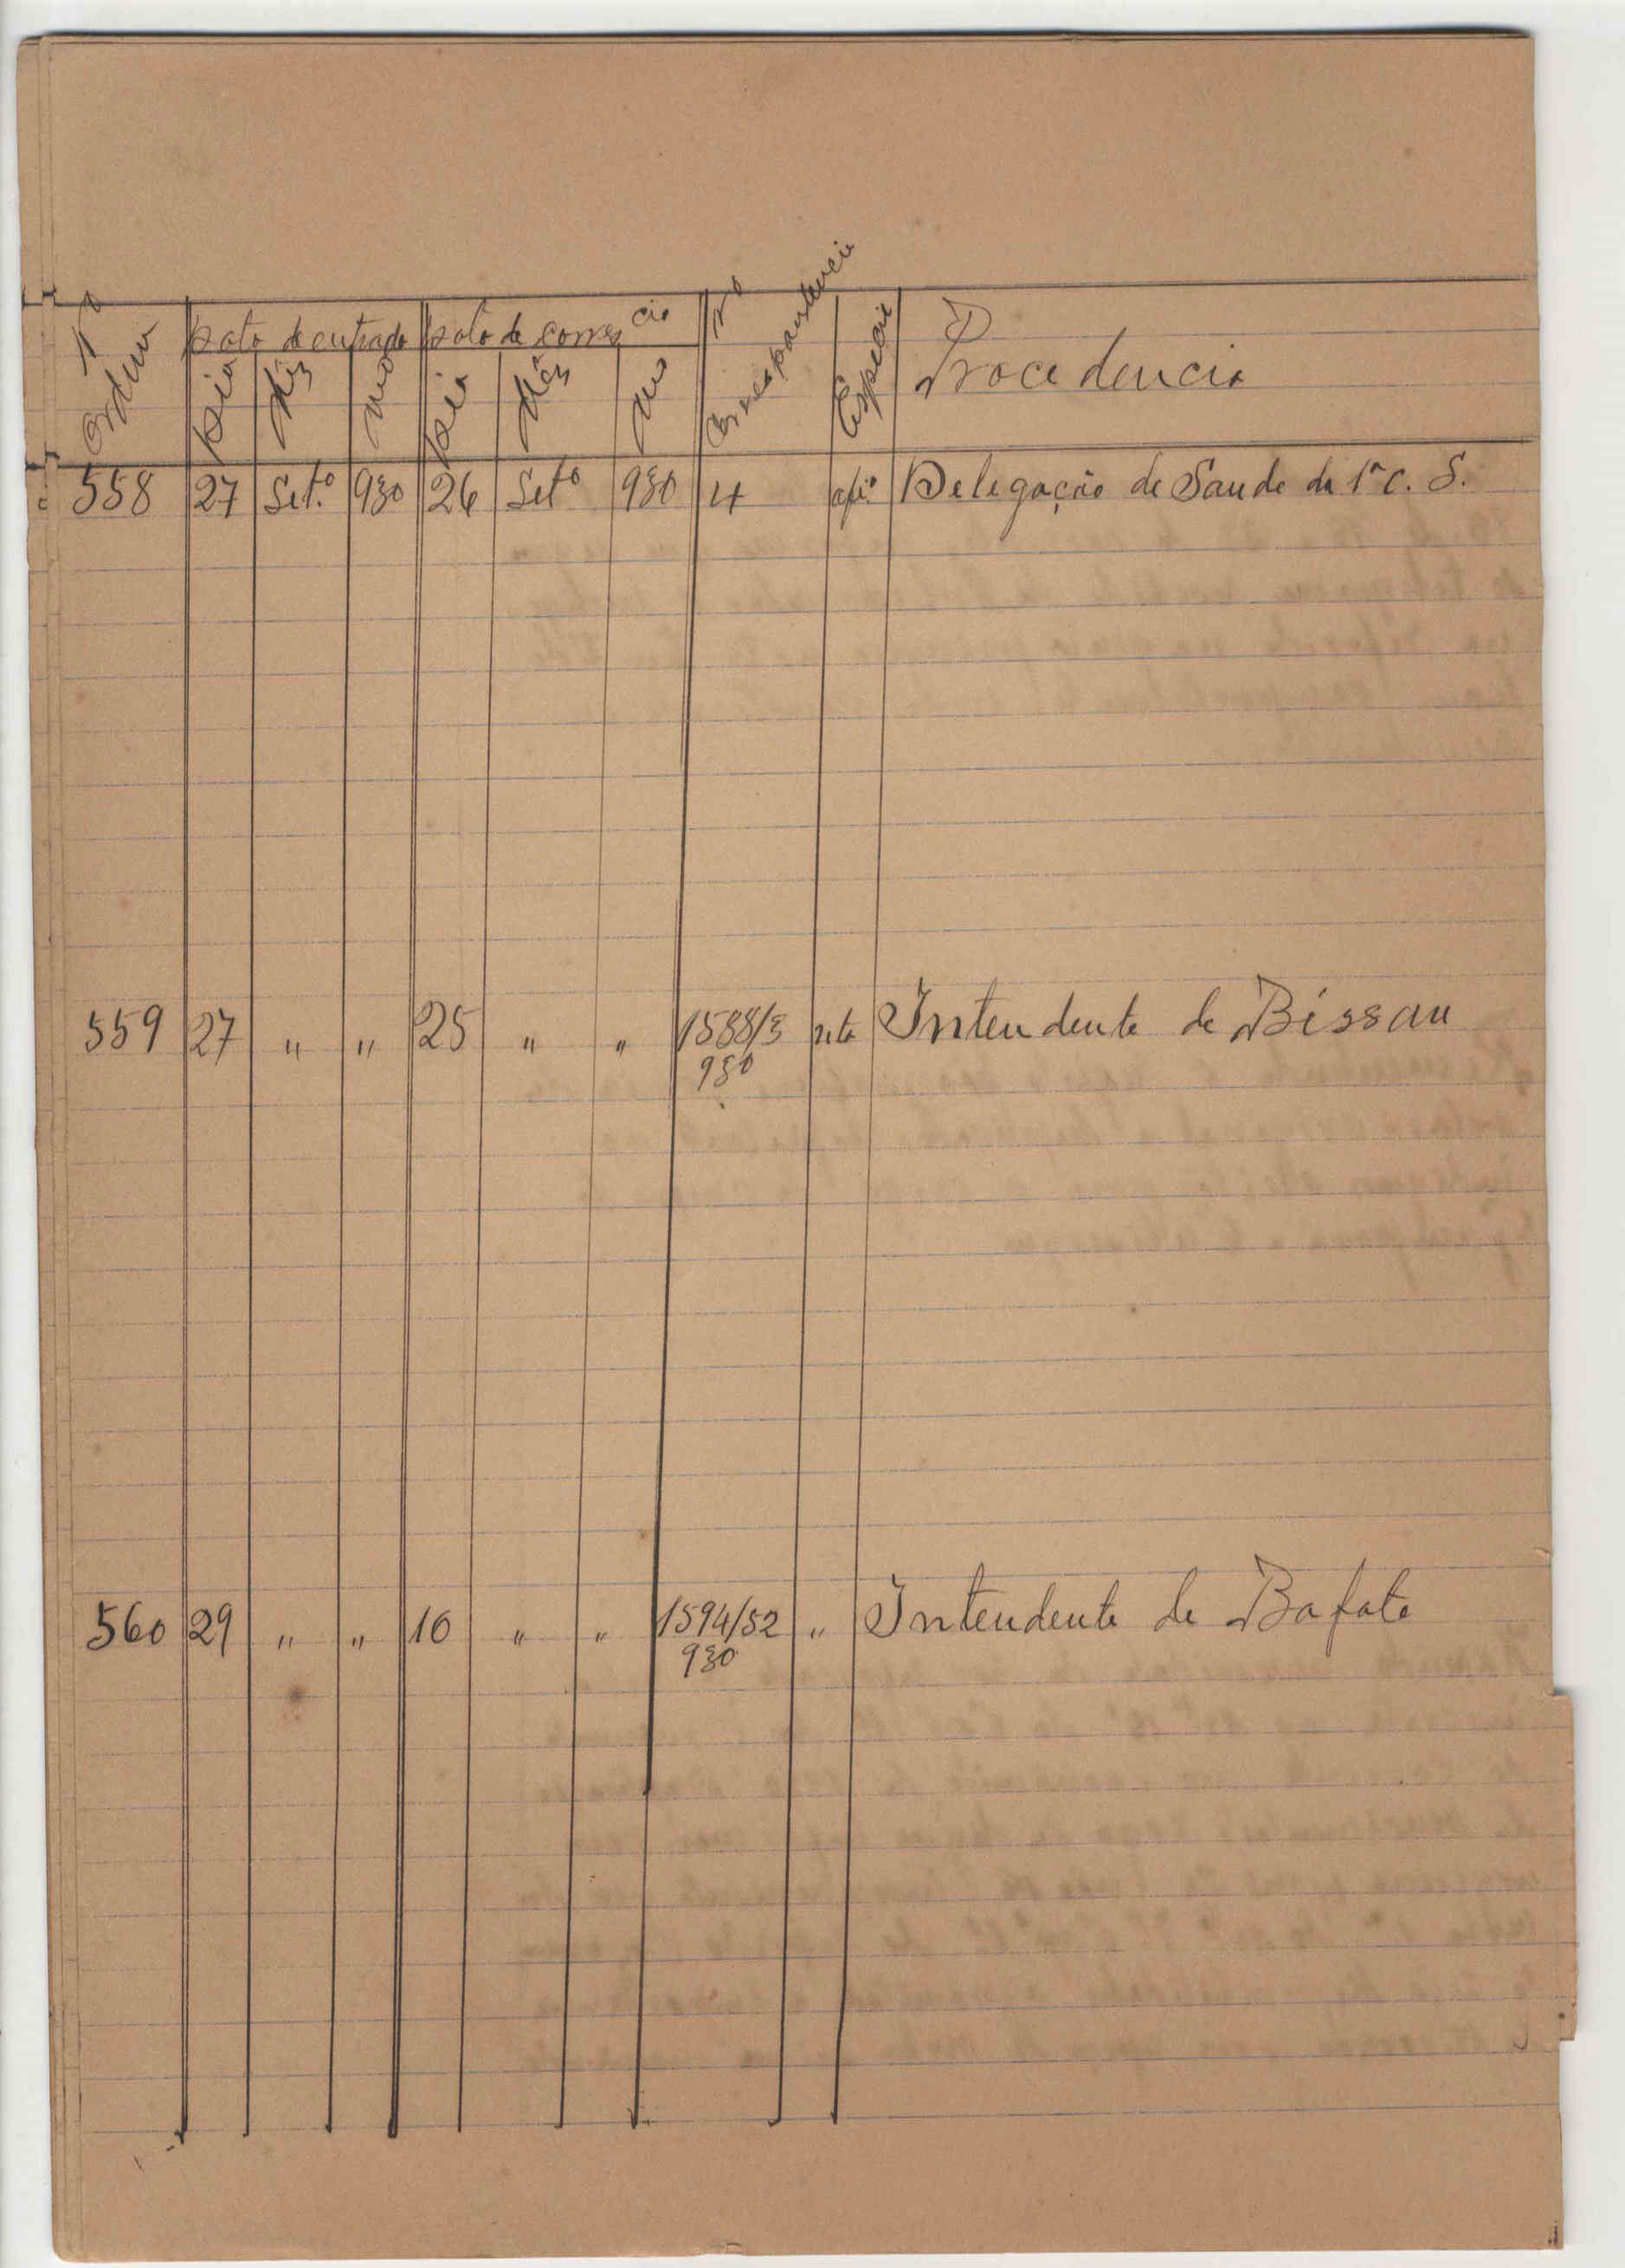 Nº Ordem | Data de entrada | Data de correscia | Nº Correspondencia | Especie | Procedencia
Dia | Mês | Ano | Dia | Mês | Ano
558 | 27 | Setº | 930 | 26 | Setº | 930 | 4 | ofiº | Delegação de Saude da 1ª C. S.
559 | 27 | " | " | 25 | " | " | 1588/3 | nta | Intendente de Bissau
930
560 | 29 | " | " | 16 | " | " | 1594/52 | " | Intendente de Bafata
930